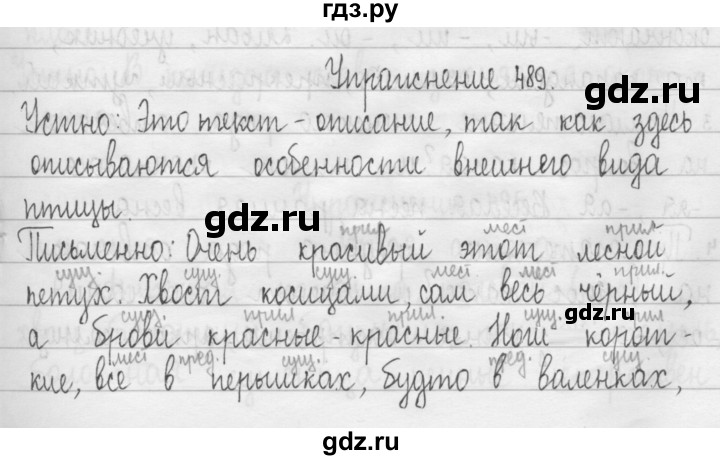 гдз.ру
Упражнение 489.
gdz.ru
Устно: Это текст - описание, так как здесь
описываются особенности внешнего вида
птицы.
gdz.ru
прил. мест прил.
Письменно: Очень красивый этот лесной
сущ. сущ. сущ. мест мест прил.
петух. Хвост косицами, сам весь чёрный,
gdz.ru
сущ. прил. прил. сущ. прил.
а брови красные - красные. Ноги корот
мест пред. сущ. пред. сущ.
кие, все в перышках, будто в валенках,
gdz.ru